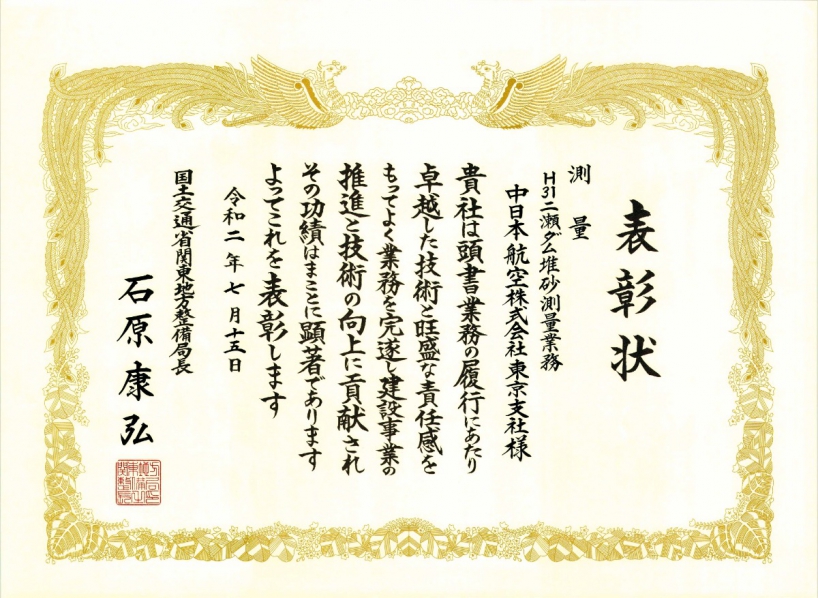 表彰状
測量
H31二瀬ダム堆砂測量業務
中日本航空株式会社東京支社様
貴社は頭書業務の履行にあたり
卓越した技術と旺盛な責任感を
もってよく業務を完遂し建設事業の
推進と技術の向上に貢献され
その功績はまことに顕著であります
よってこれを表彰します
令和二年七月十五日
国土交通省関東地方整備局長
石原康弘